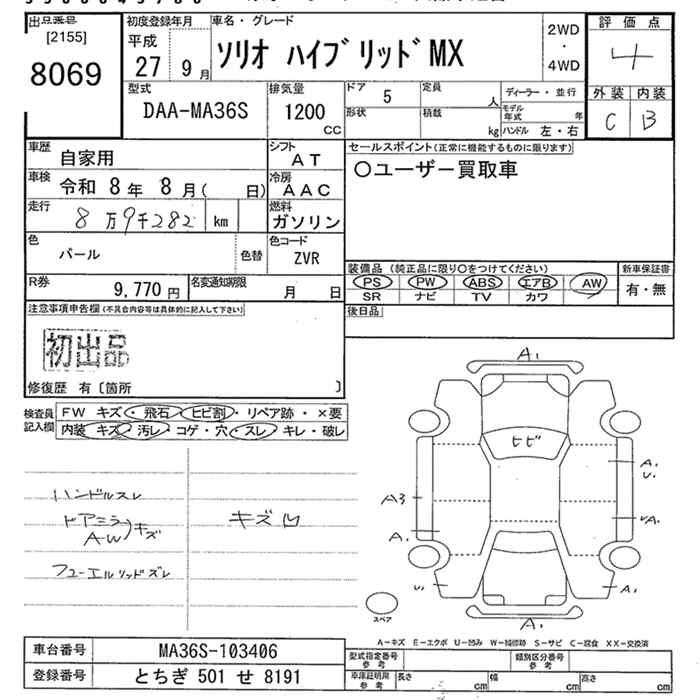 出品番号
[2155]
8069
初度登録年月
平成
27 9月
車名・グレード
ソリオ ハイブリッドMX
2WD
・
4WD
評価点
4
外装 内装
C B
型式
DAA-MA36S
排気量
1200
CC
ドア
5
定員
人
形状
積載
kg
ディーラー・並行
モデル年式 年
ハンドル 左・右
車歴
自家用
シフト
AT
車検
令和 8年 8月( 日)
冷房
AAC
走行
8万9千282 km
燃料
ガソリン
色
パール
色替
色コード
ZVR
R券
9,770円
名変通知期限
月 日
セールスポイント(正常に機能するものに限ります)
〇ユーザー買取車
装備品(純正品に限り〇をつけてください)
PS PW ABS エアB AW
SR ナビ TV カワ
新車保証書
有・無
後日品
注意事項申告欄(不具合内容等は具体的に記入して下さい)
初出品
修復歴 有〔箇所 〕
検査員記入欄
FW キズ・飛石・ヒビ割・リペア跡・×要
内装 キズ・汚レ・コゲ・穴・スレ・キレ・破レ
ハンドルスレ
ドアミラ
AW
キズ
フューエルリッドズレ
キズ凹
A1
ヒビ
A1
U1
A3
A1
UA1
U1
A1
A1
スペア
A−キズ E−エクボ U−凹み W−補修跡 S−サビ C−腐食 XX−交換済
車台番号
MA36S-103406
登録番号
とちぎ 501 せ 8191
型式指定番号
参考
類別区分番号
参考
車庫証明用
参考
長さ cm
幅 cm
高さ cm